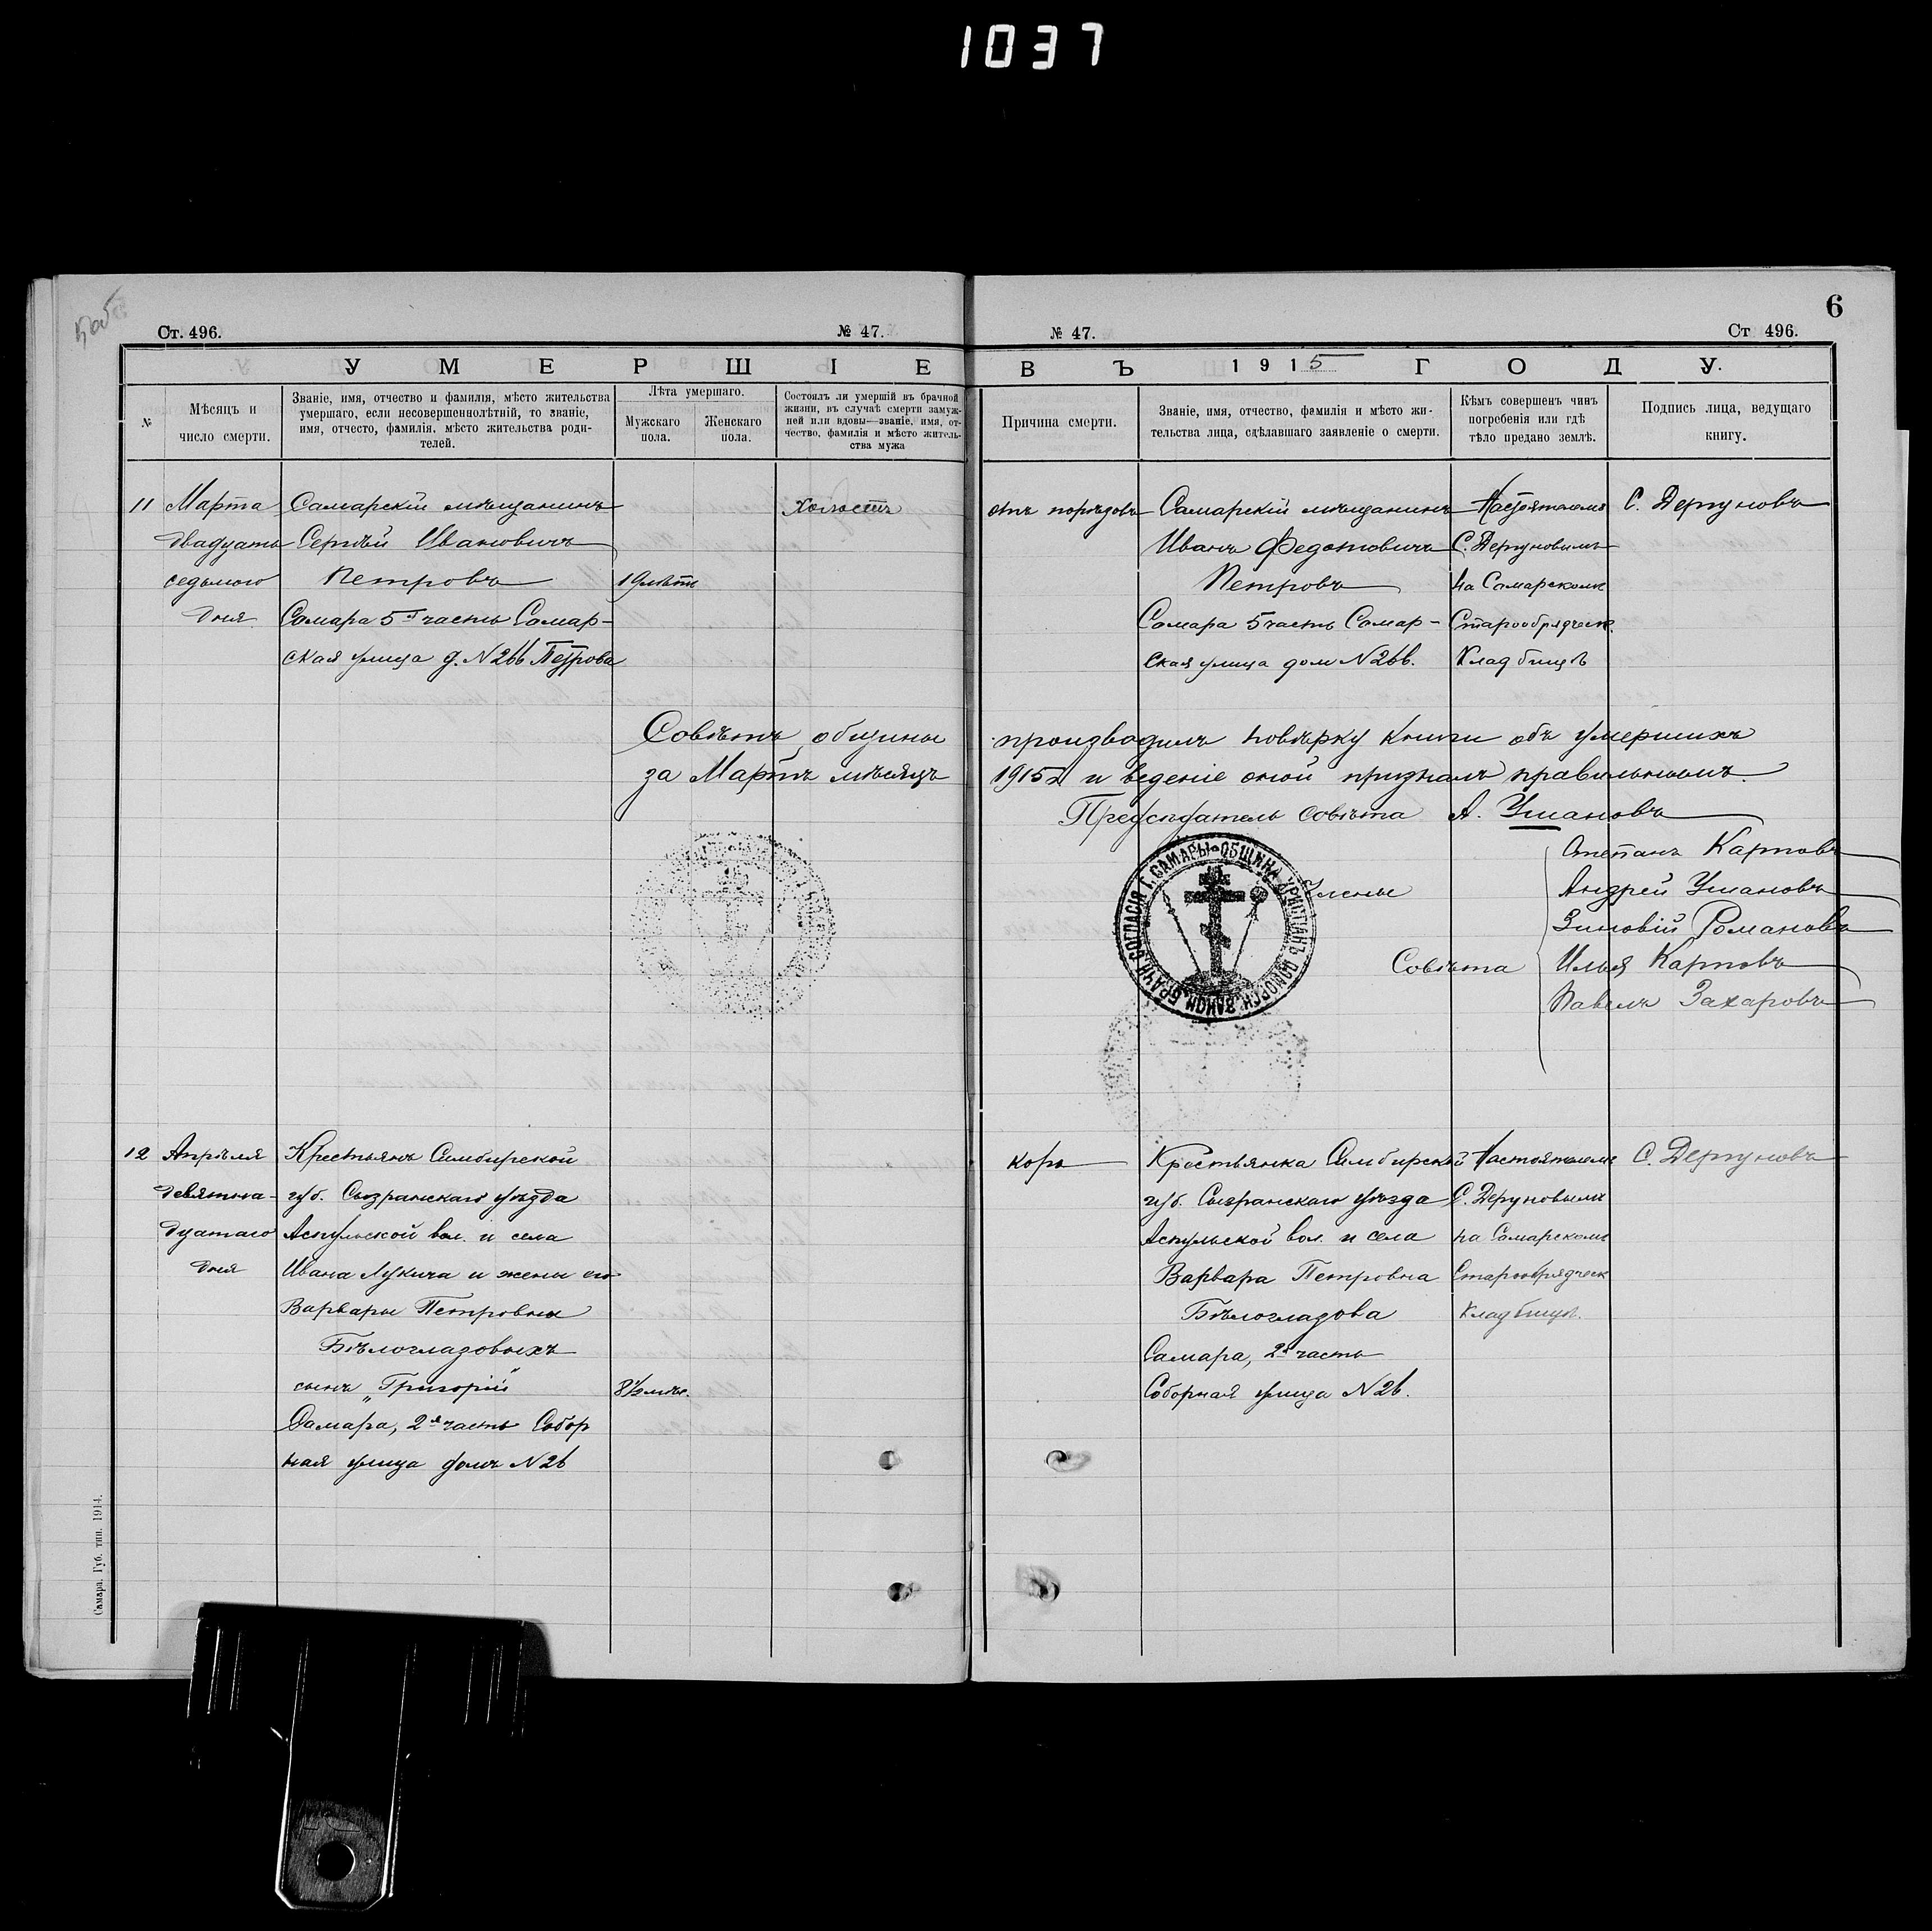 1037
6
Ст. 496.
№ 47.
№ 47.
Ст 496.
УМЕРШІЕ
ВЪ 1915 ГОДУ.
№
Мѣсяцъ и
число смерти.
Званіе, имя, отчество и фамилія, мѣсто жительства
умершаго, если несовершеннолѣтній, то званіе,
имя, отчесто, фамилія, мѣсто жительства роди-
телей.
Лѣта умершаго.
Мужскаго
пола.
Женскаго
пола.
Состоялъ ли умершій въ брачной
жизни, въ случаѣ смерти замуж-
ней или вдовы—званіе, имя, от-
чество, фамилія и мѣсто житель-
ства мужа
Причина смерти.
Званіе, имя, отчество, фамилія и мѣсто жи-
тельства лица, сдѣлавшаго заявленіе о смерти.
Кѣмъ совершенъ чинъ
погребенія или гдѣ
тѣло предано землѣ.
Подпись лица, ведущаго
книгу.
11
Марта
двадцать
седьмого
дня
Самарскій мѣщанинъ
Сергѣй Ивановичъ
Петровъ
Самара 5я часть Самар-
ская улица д. N 266 Петрова
19 лѣтъ
Холостъ
Самарскій мѣщанинъ
Иванъ Федотовичъ
Петровъ
Самара 5 часть Самар-
ская улица дом N 266.
Настоятелемъ
С. Дергуновымъ
на Самарскомъ
Старообрядческ.
Кладбищѣ
С. Дергуновъ
Совѣтъ общины производилъ повѣрку книги объ умершихъ
за Мартъ мѣсяцъ 1915 г. и веденіе оной призналъ правильнымъ.
Предсѣдатель совѣта А. Ушановъ
Члены
Совѣта
Степанъ Карповъ
Андрей Ушановъ
Зиновій Романовъ
Илья Карповъ
Павелъ Захаровъ
ОБЩИНА ХРИСТІАНЪ ПОМОРСК. ЗАКОН. БРАЧН. СОГЛАСІЯ Г. САМАРЫ
12
Апрѣля
девятна-
дцатаго
дня
Крестьянъ Симбирской
губ. Сызранскаго уѣзда
вол. и села
Ивана Лукича и жены его
Варвары Петровны
Бѣлоглазовыхъ
сынъ „Григорій"
Самара, 2я часть Собор
ная улица домъ N 26
8½ мѣс.
корь
Крестьянка Симбирской
губ. Сызранскаго уѣзда
вол. и села
Варвара Петровна
Бѣлоглазова
Самара, 2я часть
Соборная улица N 26.
Настоятелемъ
С. Дергуновымъ
на Самарскомъ
Старообрядческ
Кладбищѣ.
С. Дергуновъ
Самара. Губ. тип. 1914.